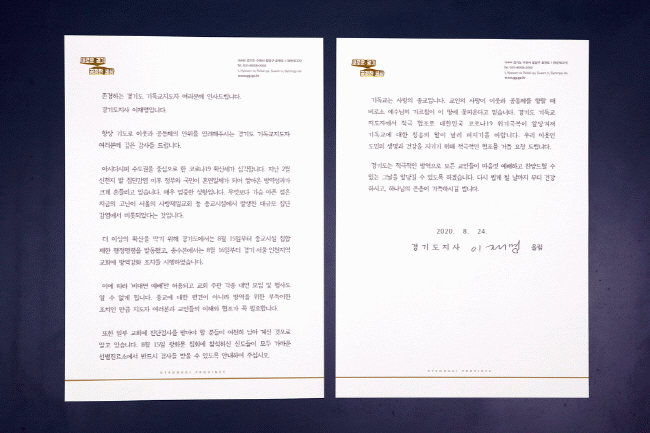 새로운 경기
공정한 세상
존경하는 경기도 기독교지도자 여러분께 인사드립니다.
경기도지사 이재명입니다.
항상 기도로 이웃과 공동체의 안위를 염려해주시는 경기도 기독교지도자
여러분께 깊은 감사를 드립니다.
아시다시피 수도권을 중심으로 한 코로나19 확산세가 심각합니다. 지난 2월
신천지 발 집단감염 이후 정부와 국민이 혼연일체가 되어 쌓아온 방역성과가
크게 흔들리고 있습니다. 매우 엄중한 상황입니다. 무엇보다 가슴 아픈 점은
지금의 고난이 서울의 사랑제일교회 등 종교시설에서 발생한 대규모 집단
감염에서 비롯되었다는 것입니다.
더 이상의 확산을 막기 위해 경기도에서는 8월 15일부터 종교시설 집합
제한 행정명령을 발동했고, 중수본에서는 8월 18일부터 경기·서울·인천지역
교회에 방역강화 조치를 시행하였습니다.
이에 따라 '비대면 예배'만 허용되고 교회 주관 각종 대면 모임 및 행사도
할 수 없게 됩니다. 종교에 대한 편견이 아니라 방역을 위한 부득이한
조치인 만큼 지도자 여러분과 교인들의 이해와 협조가 꼭 필요합니다.
또한 일부 교회에 진단검사를 받아야 할 분들이 여전히 남아 계신 것으로
알고 있습니다. 8월 15일 광화문 집회에 참석하신 신도들이 모두 가까운
선별진료소에서 반드시 검사를 받을 수 있도록 안내하여 주십시오.
GYEONGGI PROVINCE
새로운 경기
공정한 세상
기독교는 사랑의 종교입니다. 교인의 사랑이 이웃과 공동체를 향할 때
비로소 예수님의 가르침이 이 땅에 꽃피운다고 믿습니다. 경기도 기독교
지도자께서 적극 협조로 대한민국 코로나19 위기극복에 앞장서며
기독교에 대한 칭송의 말이 널리 퍼지기를 바랍니다. 우리 이웃인
도민의 생명과 건강을 지키기 위해 적극적인 협조를 거듭 요청 드립니다.
경기도는 적극적인 방역으로 모든 교인들이 마음껏 예배하고 찬양드릴 수
있는 그날을 앞당길 수 있도록 하겠습니다. 다시 뵙게 될 날까지 부디 건강
하시고, 하나님의 은총이 가득하시길 빕니다.
2020. 8. 24.
경기도지사 이재명 올림
GYEONGGI PROVINCE